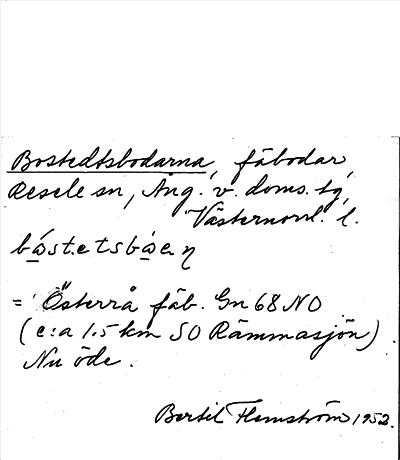 Bostedtsbodarna, fäbodar,
Resele sn, Ång. v. doms. tg,
Västernorrl. l.
bώst.etsbὼen
= Österrå fäb. Gn 68 NO
(c:a 1.5 km SO Rämmasjön).
Nu öde.
Bertil Flemström 1952.